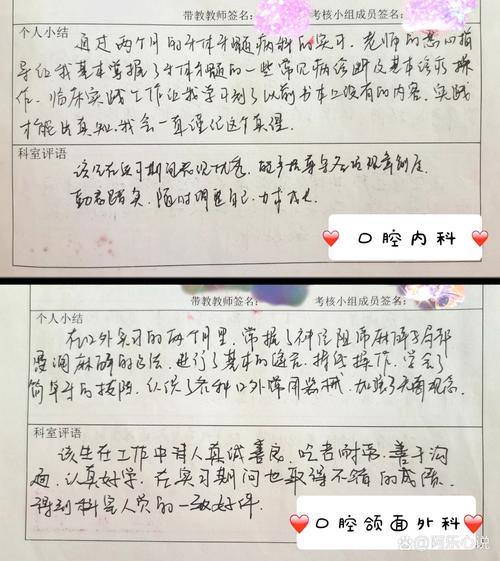 带教教师签名: 考核小组成员签名:
个人小结
通过两个月的牙体牙髓病科的实习，老师的悉心指
导让我基本掌握了牙体牙髓的一些常见病诊断及基本诊疗操
作，临床实践工作让我学习到了以前书本上没有的内容，实践
才能出真知，我会一直谨记这个真理。
科室评语
该生在实习期间表现优秀，能严格遵守各项规章制度
勤恳踏实，随时调整自己，力求
口腔内科
带教教师签名: 考核小组成员签名:
个人小结
在口外实习的两个月里，掌握了神经阻滞麻醉与局部
浸润麻醉的方法，进行了基本的缝合，操作，学会了
简单牙的拔除，认识了各种口外常用器械，加强了无菌观念
科室评语
该生在工作中待人真诚善良，吃苦耐劳，善于沟
通，认真好学，在实习期间也取得不错的成绩，
得到科室人员的一致好评。
口腔颌面外科
@阿乐心说